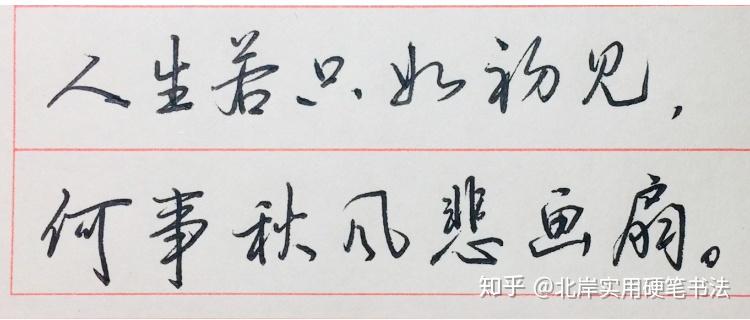 人生若只如初见，
何事秋风悲画扇。
知乎 @北岸实用硬笔书法